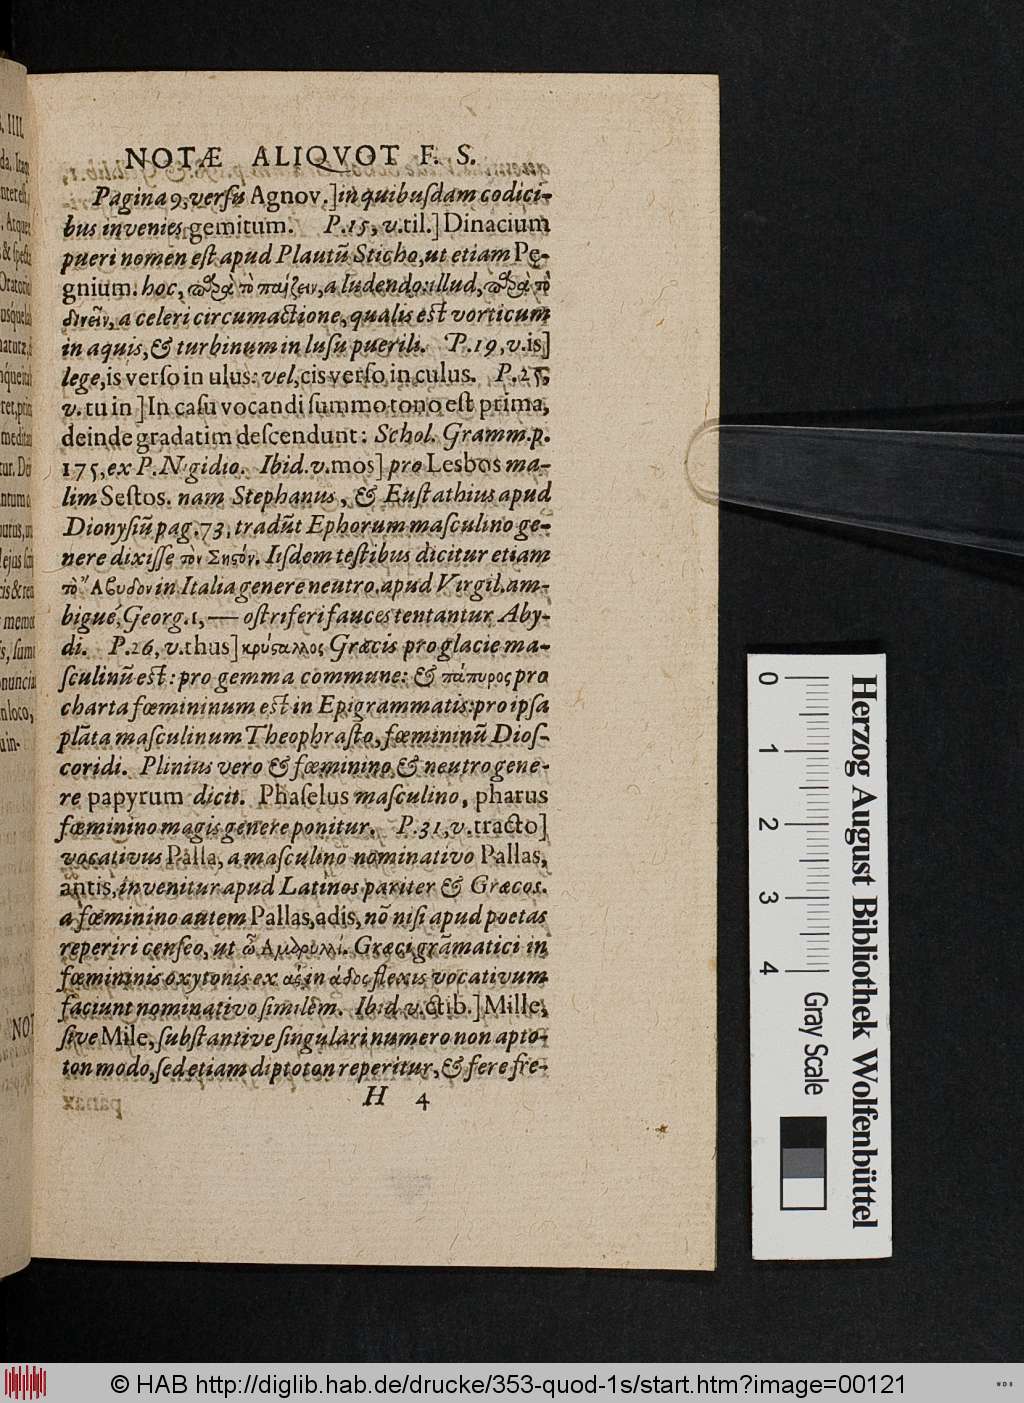 NOTÆ ALIQVOT F. S.
Pagina 9, versu Agnov.] in quibuſdam codici-
bus invenies gemitum. P. 15, v. til.] Dinacium
pueri nomen eſt apud Plautū Sticho, ut etiam Pę-
gnium. hoc, παρὰ τὸ παίζειν, a ludendo: illud, παρὰ τὸ
δινεῖν, a celeri circumactione, qualis eſt vorticum
in aquis, & turbinum in luſu puerili. P. 19, v. is]
lege, is verſo in ulus: vel, cis verſo in culus. P. 25,
v. tu in ] In caſu vocandi ſummo tono eſt prima,
deinde gradatim deſcendunt: Schol. Gramm. p.
175, ex P. Nigidio. Ibid. v. mos] pro Lesbos ma-
lim Seſtos. nam Stephanus, & Euſtathius apud
Dionyſiū pag. 73, tradūt Ephorum maſculino ge-
nere dixiſſe τὸν Σηστόν. Iiſdem teſtibus dicitur etiam
τὸ Ἄβυδον in Italia genere neutro. apud Virgil. am-
bigué, Georg. 1, — oſtriferi fauces tentantur Aby-
di. P. 26, v. thus] κρύσταλλος Græcis pro glacie ma-
ſculinū eſt: pro gemma commune: & πάπυρος pro
charta fœmininum eſt in Epigrammatis: pro ipſa
plāta maſculinum Theophraſto, fœmininū Dioſ-
coridi. Plinius vero & fœminino, & neutro gene-
re papyrum dicit. Phaſelus maſculino, pharus
fœminino magis genere ponitur. P. 31, v. tracto]
vocativus Palla, a maſculino nominativo Pallas,
antis, invenitur apud Latinos pariter & Græcos.
a fœminino autem Pallas, adis, nō niſi apud poetas
reperiri cenſeo, ut ὦ Ἀμαρυλλί. Græci grāmatici in
fœmininis oxytonis ex ας in άδος flexis vocativum
faciunt nominativo ſimilem. Ibid. v. ctib.] Mille,
ſive Mile, ſubſtantive ſingulari numero non apto-
ton modo, ſed etiam diptoton reperitur, & fere fre-
H 4
Herzog August Bibliothek Wolfenbüttel
0 1 2 3 4 Gray Scale
© HAB http://diglib.hab.de/drucke/353-quod-1s/start.htm?image=00121